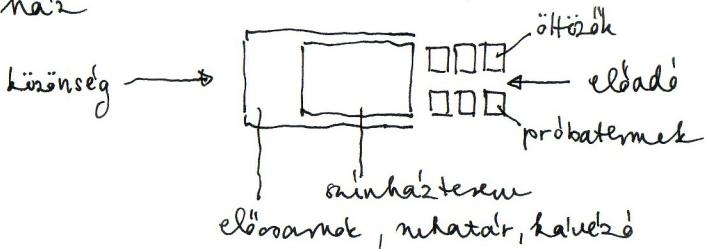 ház
öltözők
közönség
előadó
próbatermek
színházterem
előcsarnok, ruhatár, kávézó